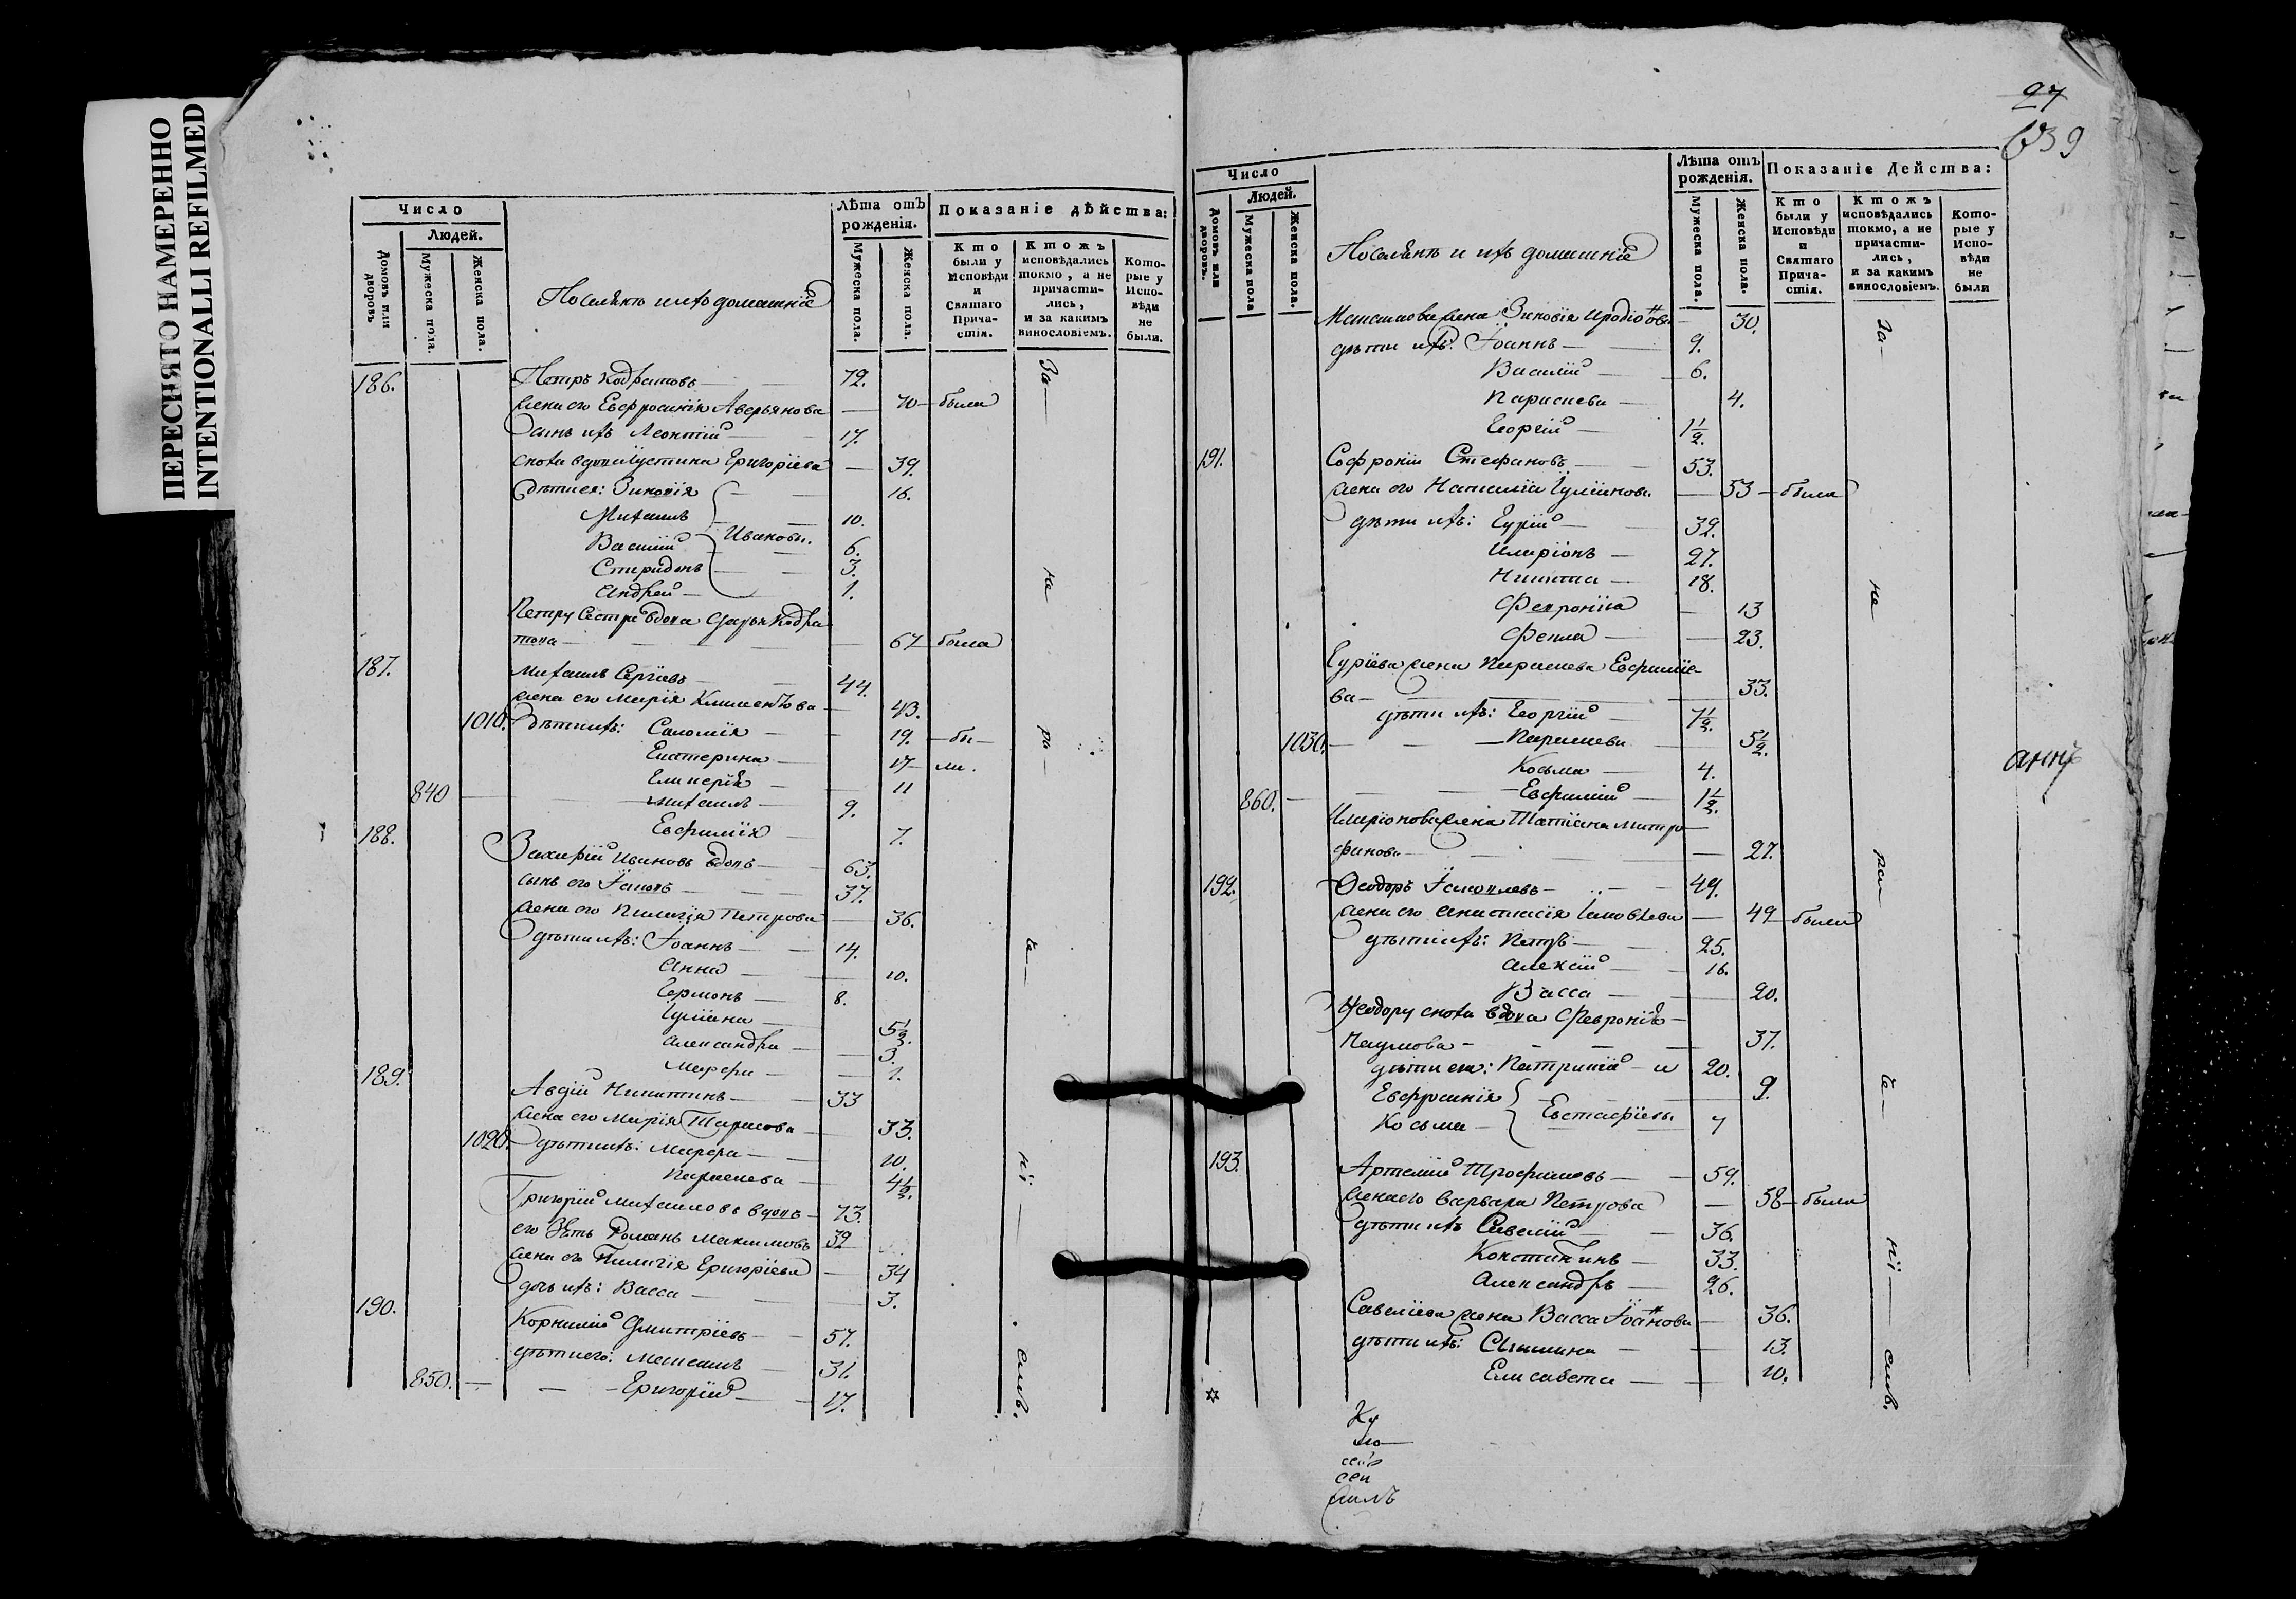 ПЕРЕСНЯТО НАМЕРЕННО
INTENTIONALLI REFILMED
Число
Людей.
Домовъ или дворовъ
Мужеска пола.
Женска пола.
Поселянъ и ихъ домашніе
Лѣта отъ рожденія.
Мужеска пола.
Женска пола.
Показаніе дѣйства:
Кто были у Исповѣди и Святаго Причастія.
Ктожъ исповѣдались токмо, а не причастились, и за какимъ винословіемъ.
Которые у Исповѣди не были.
186. Петръ Кодратовъ — 72.
жена его Евфросинія Аверьянова — 70 — были
сынъ ихъ Леонтій — 17.
снοха вдова Іустина Григоріева — 39.
дѣти ея: Зиновія — 16.
Михаилъ — 10.
Василій } Ивановы. — 6.
Спиридонъ — 3.
Андрей — 1.
Петру сестра вдова Дарья Кодра
това — 67 — была
187. Михаилъ Сергіевъ — 44.
жена его Марія Климентова — 43.
1010. дѣти ихъ: Саломія — 19. — бы —
Екатерина — 17 — ли.
Гликерія — 11
840 — Михаилъ — 9.
Евфимія — 7.
188. Захарій Ивановъ вдовъ — 63.
сынъ его Іаковъ — 37.
жена его Пелагія Петрова — 36.
дѣти ихъ: Іоаннъ — 14.
Анна — 10.
Гермонъ — 8.
Іуліана — 5 1/2.
Александра — 3.
Марфа — 1.
189. Авдій Никитинъ — 33
жена его Марія Тарасова — 33.
1020. дѣти ихъ: Марфа — 10.
Параскева — 4 1/2.
Григорій Михаиловъ вдовъ — 73.
его зять Романъ Максимовъ 32
жена его Пелагія Григоріева — 34
дочь ихъ: Васса — 3.
190. Корнилій Дмитріевъ — 57.
дѣти его: Максимъ — 31.
850. — Григорій — 17.
За — не — ра — че — ні — емъ.
27
639
Число
Людей.
Домовъ или дворовъ.
Мужеска пола
Женска пола.
Поселянъ и ихъ домашніе
Лѣта отъ рожденія.
Мужеска пола.
Женска пола.
Показаніе Действа:
Кто были у Исповѣди и Святаго Причастія.
Ктожъ исповѣдались токмо, а не причастились, и за какимъ винословіемъ.
Которые у Исповѣди не были
Максимова жена Зиновія Иродіонова — 30.
дѣти ихъ: Іоаннъ — 9.
Василій — 6.
Параскева — 4.
Георгій — 1 1/2.
191. Софроній Стефановъ — 53.
жена его Наталія Іуліанова — 53 — были
дѣти ихъ: Гурій — 32.
Иларіонъ — 27.
Никита — 18.
Февронія — 13
Фекла — 23.
Гуріева жена Параскева Евфиміе-
ва — 33.
дѣти ихъ: Георгій — 7 1/2.
1030. — Параскева — 5 1/2.
Косьма — 4.
860. — Евфимій — 1 1/2.
Иларіонова жена Татіана Митро
фанова — 27.
192. Ѳеодоръ Іаковлевъ — 49.
жена его Анастасія Іаковлева — 49 — были
дѣти ихъ: Петръ — 25.
Алексій — 16.
Васса — 20.
Ѳеодору сноха вдова Февронія —
Наумова — 37.
дѣти ея: Патрикій — и 20.
Евфросинія } — 9.
Косьма } Евстафіевы. 7
193. Артемій Трофимовъ — 59.
жена его Варвара Петрова — 58 — были
дѣти ихъ Савелій — 36.
Константинъ — 33.
Александръ — 26.
Савеліева жена Васса Іоаннова — 36.
дѣти ихъ: — 13.
Елисавета — 10.
За — не — ра — че — ні — емъ.